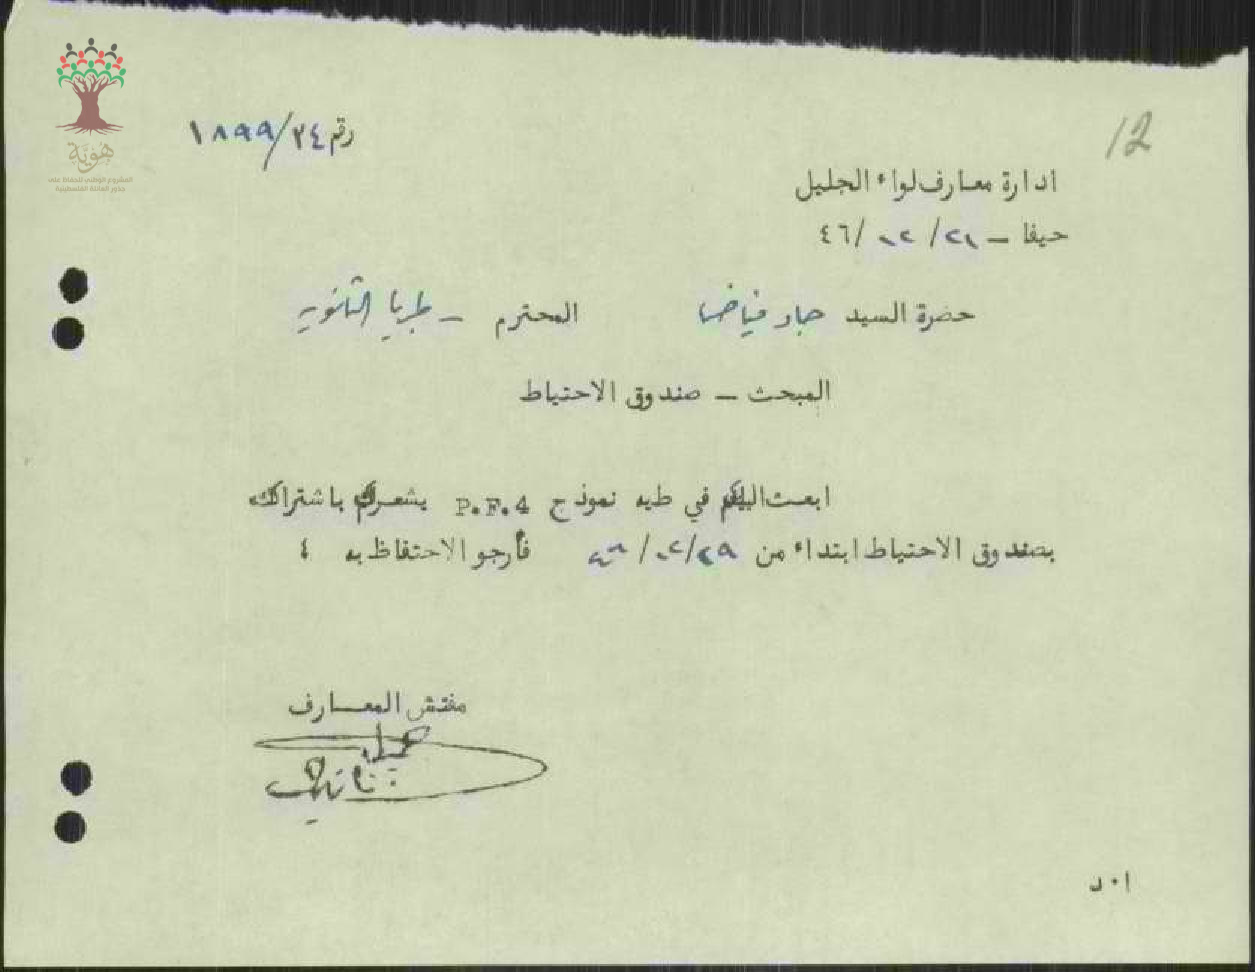 هوية
المشروع الوطني للحفاظ على
جذور العائلة الفلسطينية
رقم ٢٤/١٨٩٩
12
ادارة معارف لواء الجليل
حيفا – ٢١/ ١٢ /٤٦
حضرة السيد المحترم – طبريا الثانوية
المبحث – صندوق الاحتياط
ابعث اليكم في طيه نموذج P.F.4 يشعركم باشتراككم
بصندوق الاحتياط ابتداء من فأرجو الاحتفاظ به ٤
مفتش المعارف
ا٠د